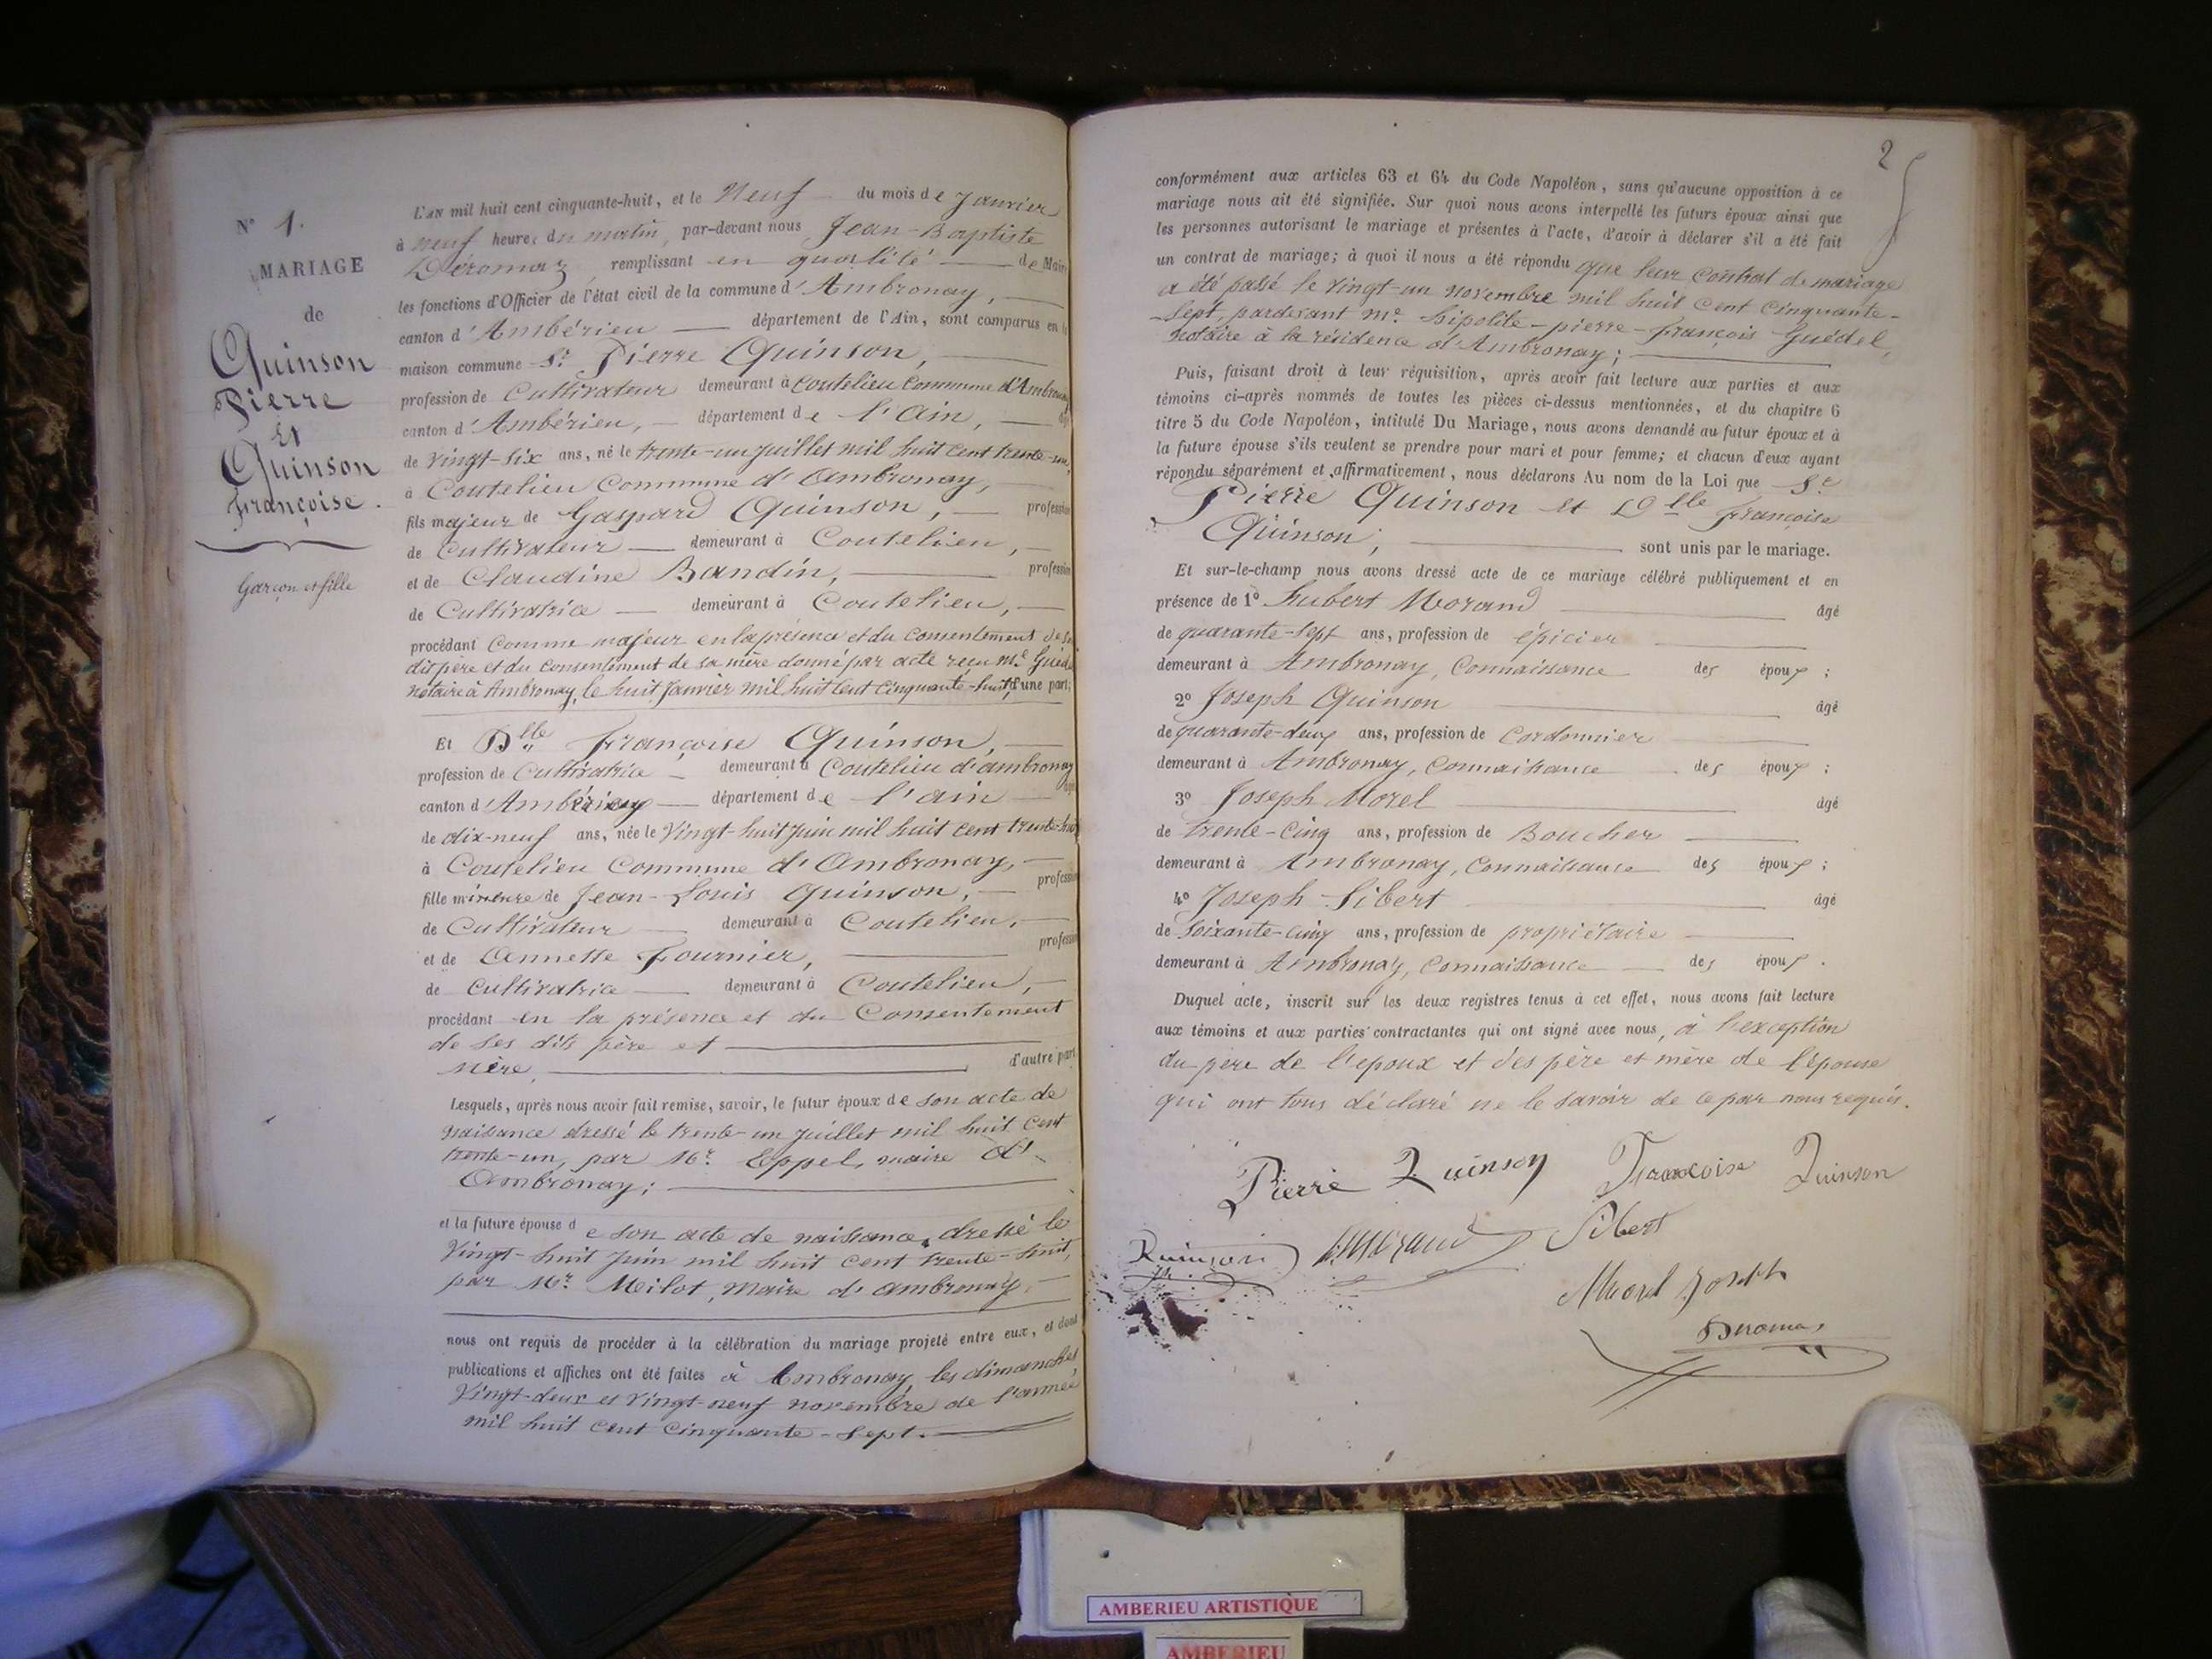 N° 1.
MARIAGE
de
Quinson
Pierre
Et
Quinson
Françoise.
Garçon et fille
L'an mil huit cent cinquante-huit, et le Neuf du mois de Janvier
à neuf heures du matin, par-devant nous Jean-Baptiste
Déromaz remplissant en qualité de Maire
les fonctions d'Officier de l'état civil de la commune d'Ambronay,
canton d'Ambérieu département de l'Ain, sont comparus en la
maison commune Sr Pierre Quinson,
profession de Cultivateur demeurant à Coutelieu Commune d'Ambronay
canton d'Ambérieu, département de l'Ain,
de vingt-six ans, né le trente-un juillet mil huit cent trente-un,
à Coutelieu Commune d'Ambronay,
fils majeur de Gaspard Quinson, profession
de Cultivateur demeurant à Coutelieu,
et de Claudine Bandin, profession
de Cultivatrice demeurant à Coutelieu,
procédant comme majeur en la présence et du consentement de son
dit père et du consentement de sa mère donné par acte reçu Me Guédel
notaire à Ambronay, le huit janvier mil huit cent cinquante-huit d'une part;
Et Dlle Françoise Quinson,
profession de Cultivatrice demeurant à Coutelieu d'ambronay
canton d'Ambérieu département de l'ain
de dix-neuf ans, née le Vingt-huit Juin mil huit cent trente-huit
à Coutelieu Commune d'Ambronay,
fille mineure de Jean-Louis Quinson, profession
de Cultivateur demeurant à Coutelieu,
et de Annette Fournier, profession
de Cultivatrice demeurant à Coutelieu,
procédant en la présence et du Consentement
de ses dits père et
Mère, d'autre part
Lesquels, après nous avoir fait remise, savoir, le futur époux de son acte de
naissance dressé le trente-un juillet mil huit cent
trente-un, par Mr. Eppel, maire d'
Ambronay;
et la future épouse de son acte de naissance, dressé le
Vingt-huit Juin mil huit cent trente-huit,
par Mr. Meilot, Maire d'ambronay.
nous ont requis de procéder à la célébration du mariage projeté entre eux, et dont
publications et affiches ont été faites à Ambronay, les dimanches
Vingt-deux et vingt-neuf novembre de l'année
mil huit cent cinquante-sept.
2
conformément aux articles 63 et 64 du Code Napoléon, sans qu'aucune opposition à ce
mariage nous ait été signifiée. Sur quoi nous avons interpellé les futurs époux ainsi que
les personnes autorisant le mariage et présentes à l'acte, d'avoir à déclarer s'il a été fait
un contrat de mariage; à quoi il nous a été répondu que leur contrat de mariage
a été passé le vingt-un novembre mil huit cent cinquante-
sept, pardevant Me. hipolite-pierre-françois Guédel,
notaire à la résidence d'Ambronay;
Puis, faisant droit à leur réquisition, après avoir fait lecture aux parties et aux
témoins ci-après nommés de toutes les pièces ci-dessus mentionnées, et du chapitre 6
titre 5 du Code Napoléon, intitulé Du Mariage, nous avons demandé au futur époux et à
la future épouse s'ils veulent se prendre pour mari et pour femme; et chacun d'eux ayant
répondu séparément et affirmativement, nous déclarons Au nom de la Loi que Sr
Pierre Quinson et Dlle Françoise
Quinson, sont unis par le mariage.
Et sur-le-champ nous avons dressé acte de ce mariage célébré publiquement et en
présence de 1° hubert Morand âgé
de quarante-sept ans, profession de épicier
demeurant à Ambronay, Connaissance des époux;
2° Joseph Quinson âgé
de quarante-deux ans, profession de Cordonnier
demeurant à Ambronay, Connaissance des époux;
3° Joseph Morel âgé
de trente-cinq ans, profession de Boucher
demeurant à Ambronay, Connaissance des époux;
4° Joseph Sibert âgé
de soixante-cinq ans, profession de propriétaire
demeurant à Ambronay, Connaissance des époux.
Duquel acte, inscrit sur les deux registres tenus à cet effet, nous avons fait lecture
aux témoins et aux parties contractantes qui ont signé avec nous, à l'exception
du père de l'époux et des père et mère de l'épouse
qui ont tous déclaré ne le savoir de ce par nous requis.
Pierre Quinson Francoise Quinson
Quinson h. Morand Sibert
Morel Joseph
Deromaz
AMBERIEU ARTISTIQUE
AMBERIEU